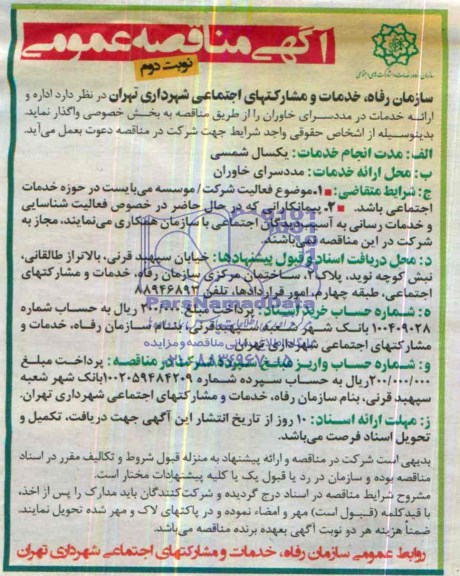 آگهی مناقصه عمومی
نوبت دوم
سازمان رفاه، خدمات و مشارکتهای اجتماعی شهرداری تهران در نظر دارد اداره و
ارائه خدمات در مددسرای خاوران را از طریق مناقصه به بخش خصوصی واگذار نماید.
بدینوسیله از اشخاص حقوقی واجد شرایط جهت شرکت در مناقصه دعوت بعمل می‌آید.
الف: مدت انجام خدمات: یکسال شمسی
ب: محل ارائه خدمات: مددسرای خاوران
ج: شرایط متقاضی: ۱. موضوع فعالیت شرکت/ موسسه می‌بایست در حوزه خدمات
اجتماعی باشد. ۲. پیمانکارانی که در حال حاضر در خصوص فعالیت شناسایی
و خدمات رسانی به آسیب‌دیدگان اجتماعی با سازمان همکاری می‌نمایند، مجاز به
شرکت در این مناقصه نمی‌باشند.
د: محل دریافت اسناد و قبول پیشنهادها: خیابان سپهبد قرنی، بالاتر از طالقانی،
نبش کوچه نوید، پلاک ۲، ساختمان مرکزی سازمان رفاه، خدمات و مشارکتهای
اجتماعی، طبقه چهارم، امور قراردادها، تلفن ۸۸۹۴۶۸۹۲
ه: شماره حساب خرید اسناد: پرداخت مبلغ ۲۰۰/۰۰۰ ریال به حساب شماره
۱۰۰۴۰۹۰۲۸ بانک شهر سپهبد قرنی، بنام سازمان رفاه، خدمات و
مشارکتهای اجتماعی شهرداری تهران
و: شماره حساب واریز مبلغ سپرده شرکت در مناقصه: پرداخت مبلغ
۲۰۰/۰۰۰/۰۰۰ ریال به حساب سپرده شماره ۱۰۰۲۰۵۹۴۸۴۲۰۹ بانک شهر شعبه
سپهبد قرنی، بنام سازمان رفاه، خدمات و مشارکتهای اجتماعی شهرداری تهران.
ز: مهلت ارائه اسناد: ۱۰ روز از تاریخ انتشار این آگهی جهت دریافت، تکمیل و
تحویل اسناد فرصت می‌باشد.
بدیهی است شرکت در مناقصه و ارائه پیشنهاد به منزله قبول شروط و تکالیف مقرر در اسناد
مناقصه بوده و سازمان در رد یا قبول یک یا کلیه پیشنهادات مختار است.
مشروح شرایط مناقصه در اسناد درج گردیده و شرکت‌کنندگان باید مدارک را پس از اخذ،
با قید کلمه (قبول است) مهر و امضاء نموده و در پاکتهای لاک و مهر شده تحویل نمایند.
ضمناً هزینه هر دو نوبت آگهی بعهده برنده مناقصه می‌باشد.
روابط عمومی سازمان رفاه، خدمات و مشارکتهای اجتماعی شهرداری تهران
ParsNamadData